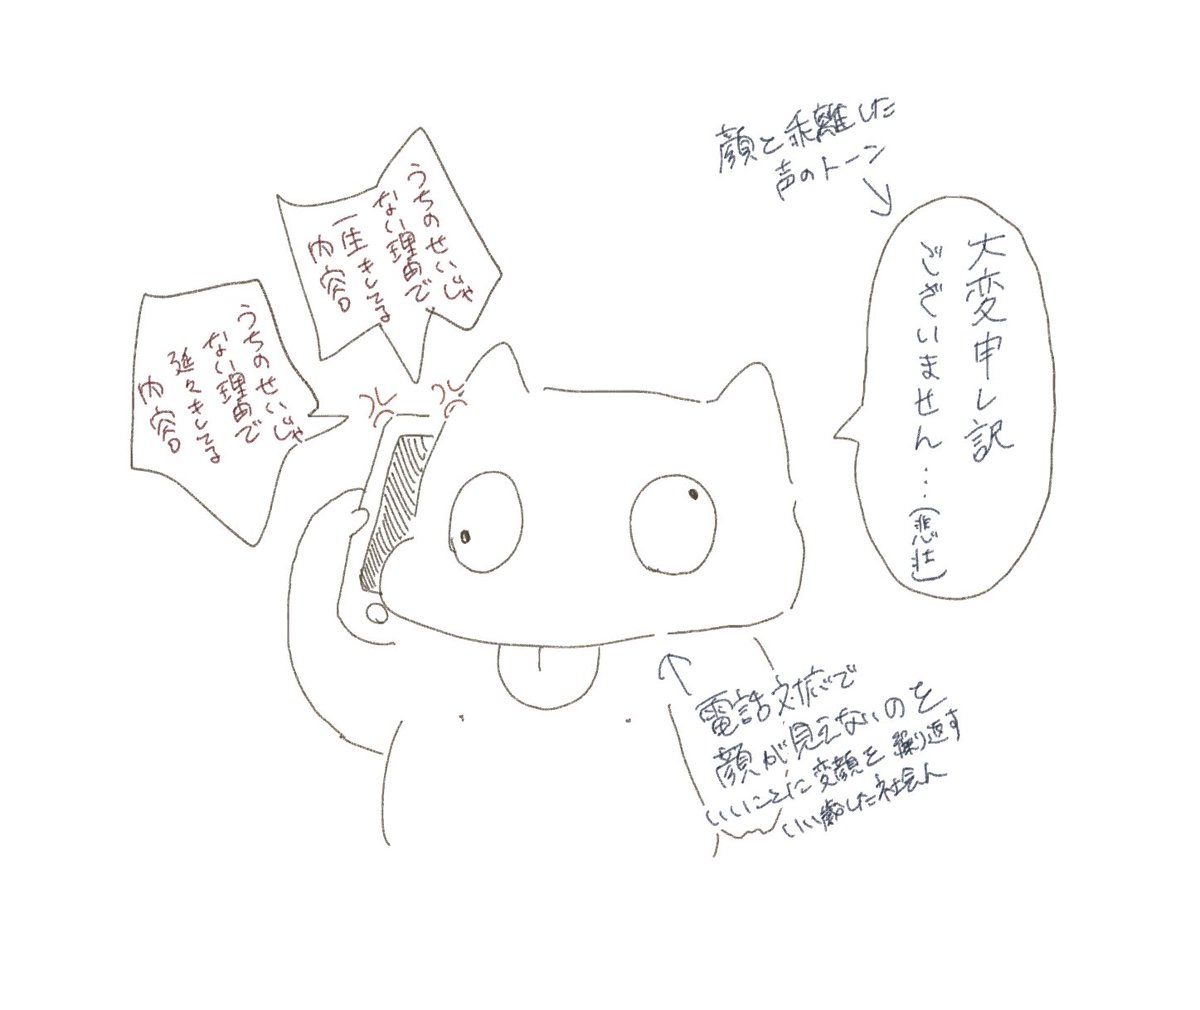 顔と乖離した
声のトーン
大変申し訳
ございません…(悲壮)
うちのせいじゃ
ない理由で
一生キレてる
内容
うちのせいじゃ
ない理由で
延々キレてる
内容
電話対応で
顔が見えないのを
いいことに変顔を繰り返す
いい歳した社会人